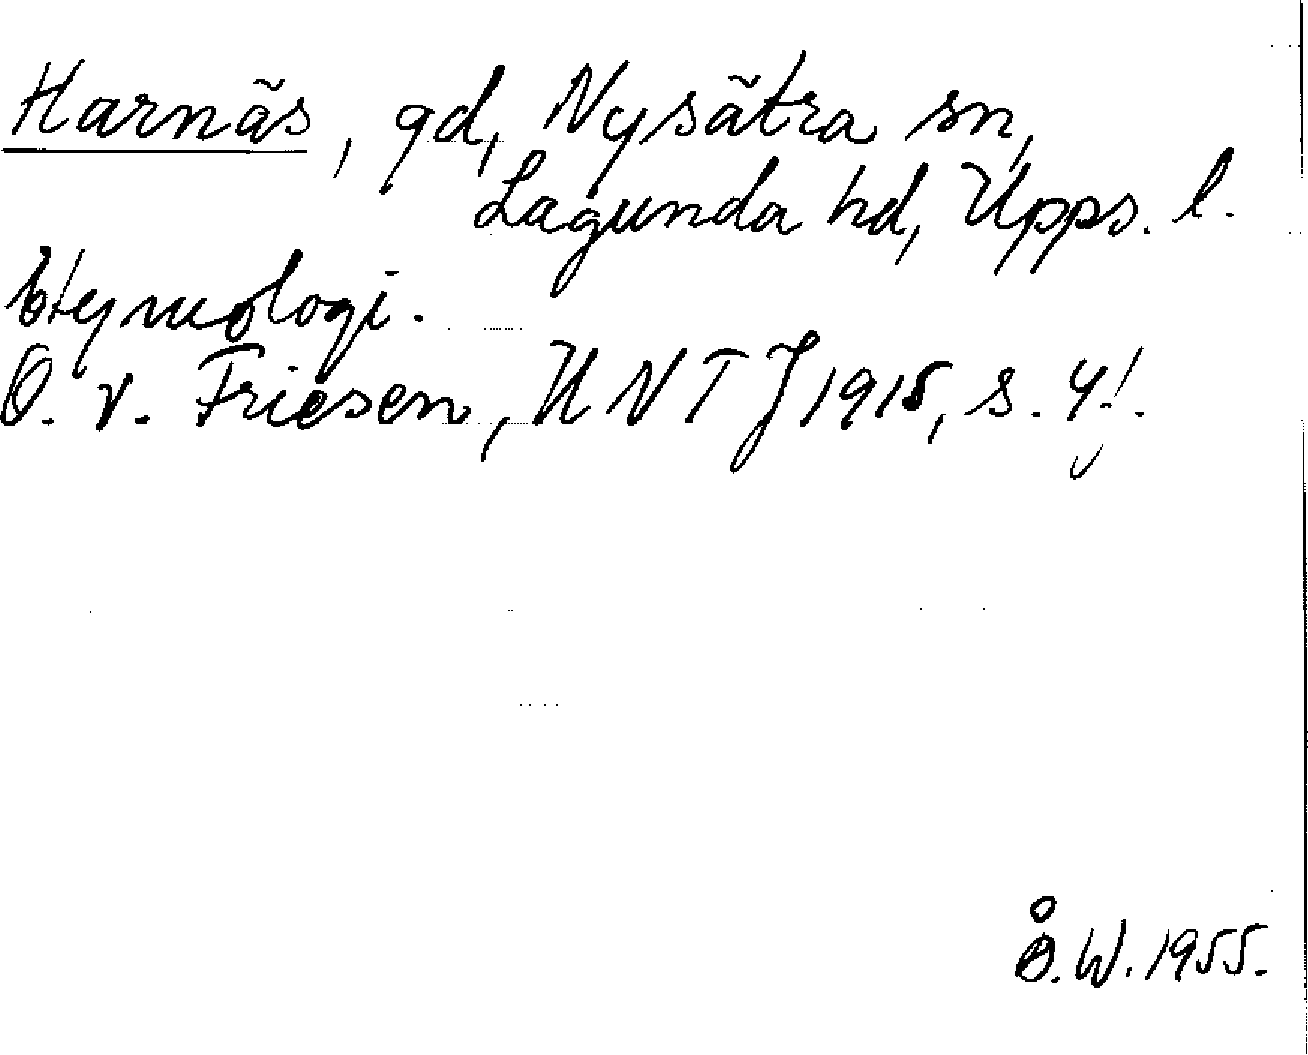 Harnäs, gd, Nysätra sn,
Lagunda hd, Upps. l.
Etymologi.
O. v. Friesen, UNTJ 1915, s. 4!.
Å. W. 1955.